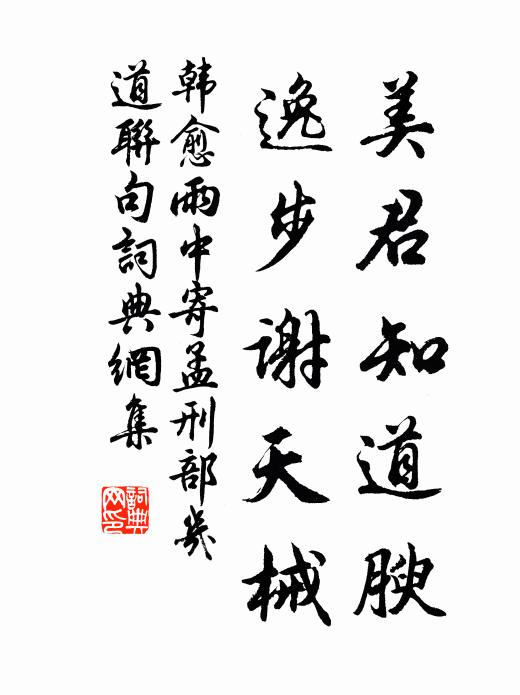 美君知道腴
逸步谢天械
韩愈雨中寄孟刑部幾
道聯句詞典網集
詞典网印